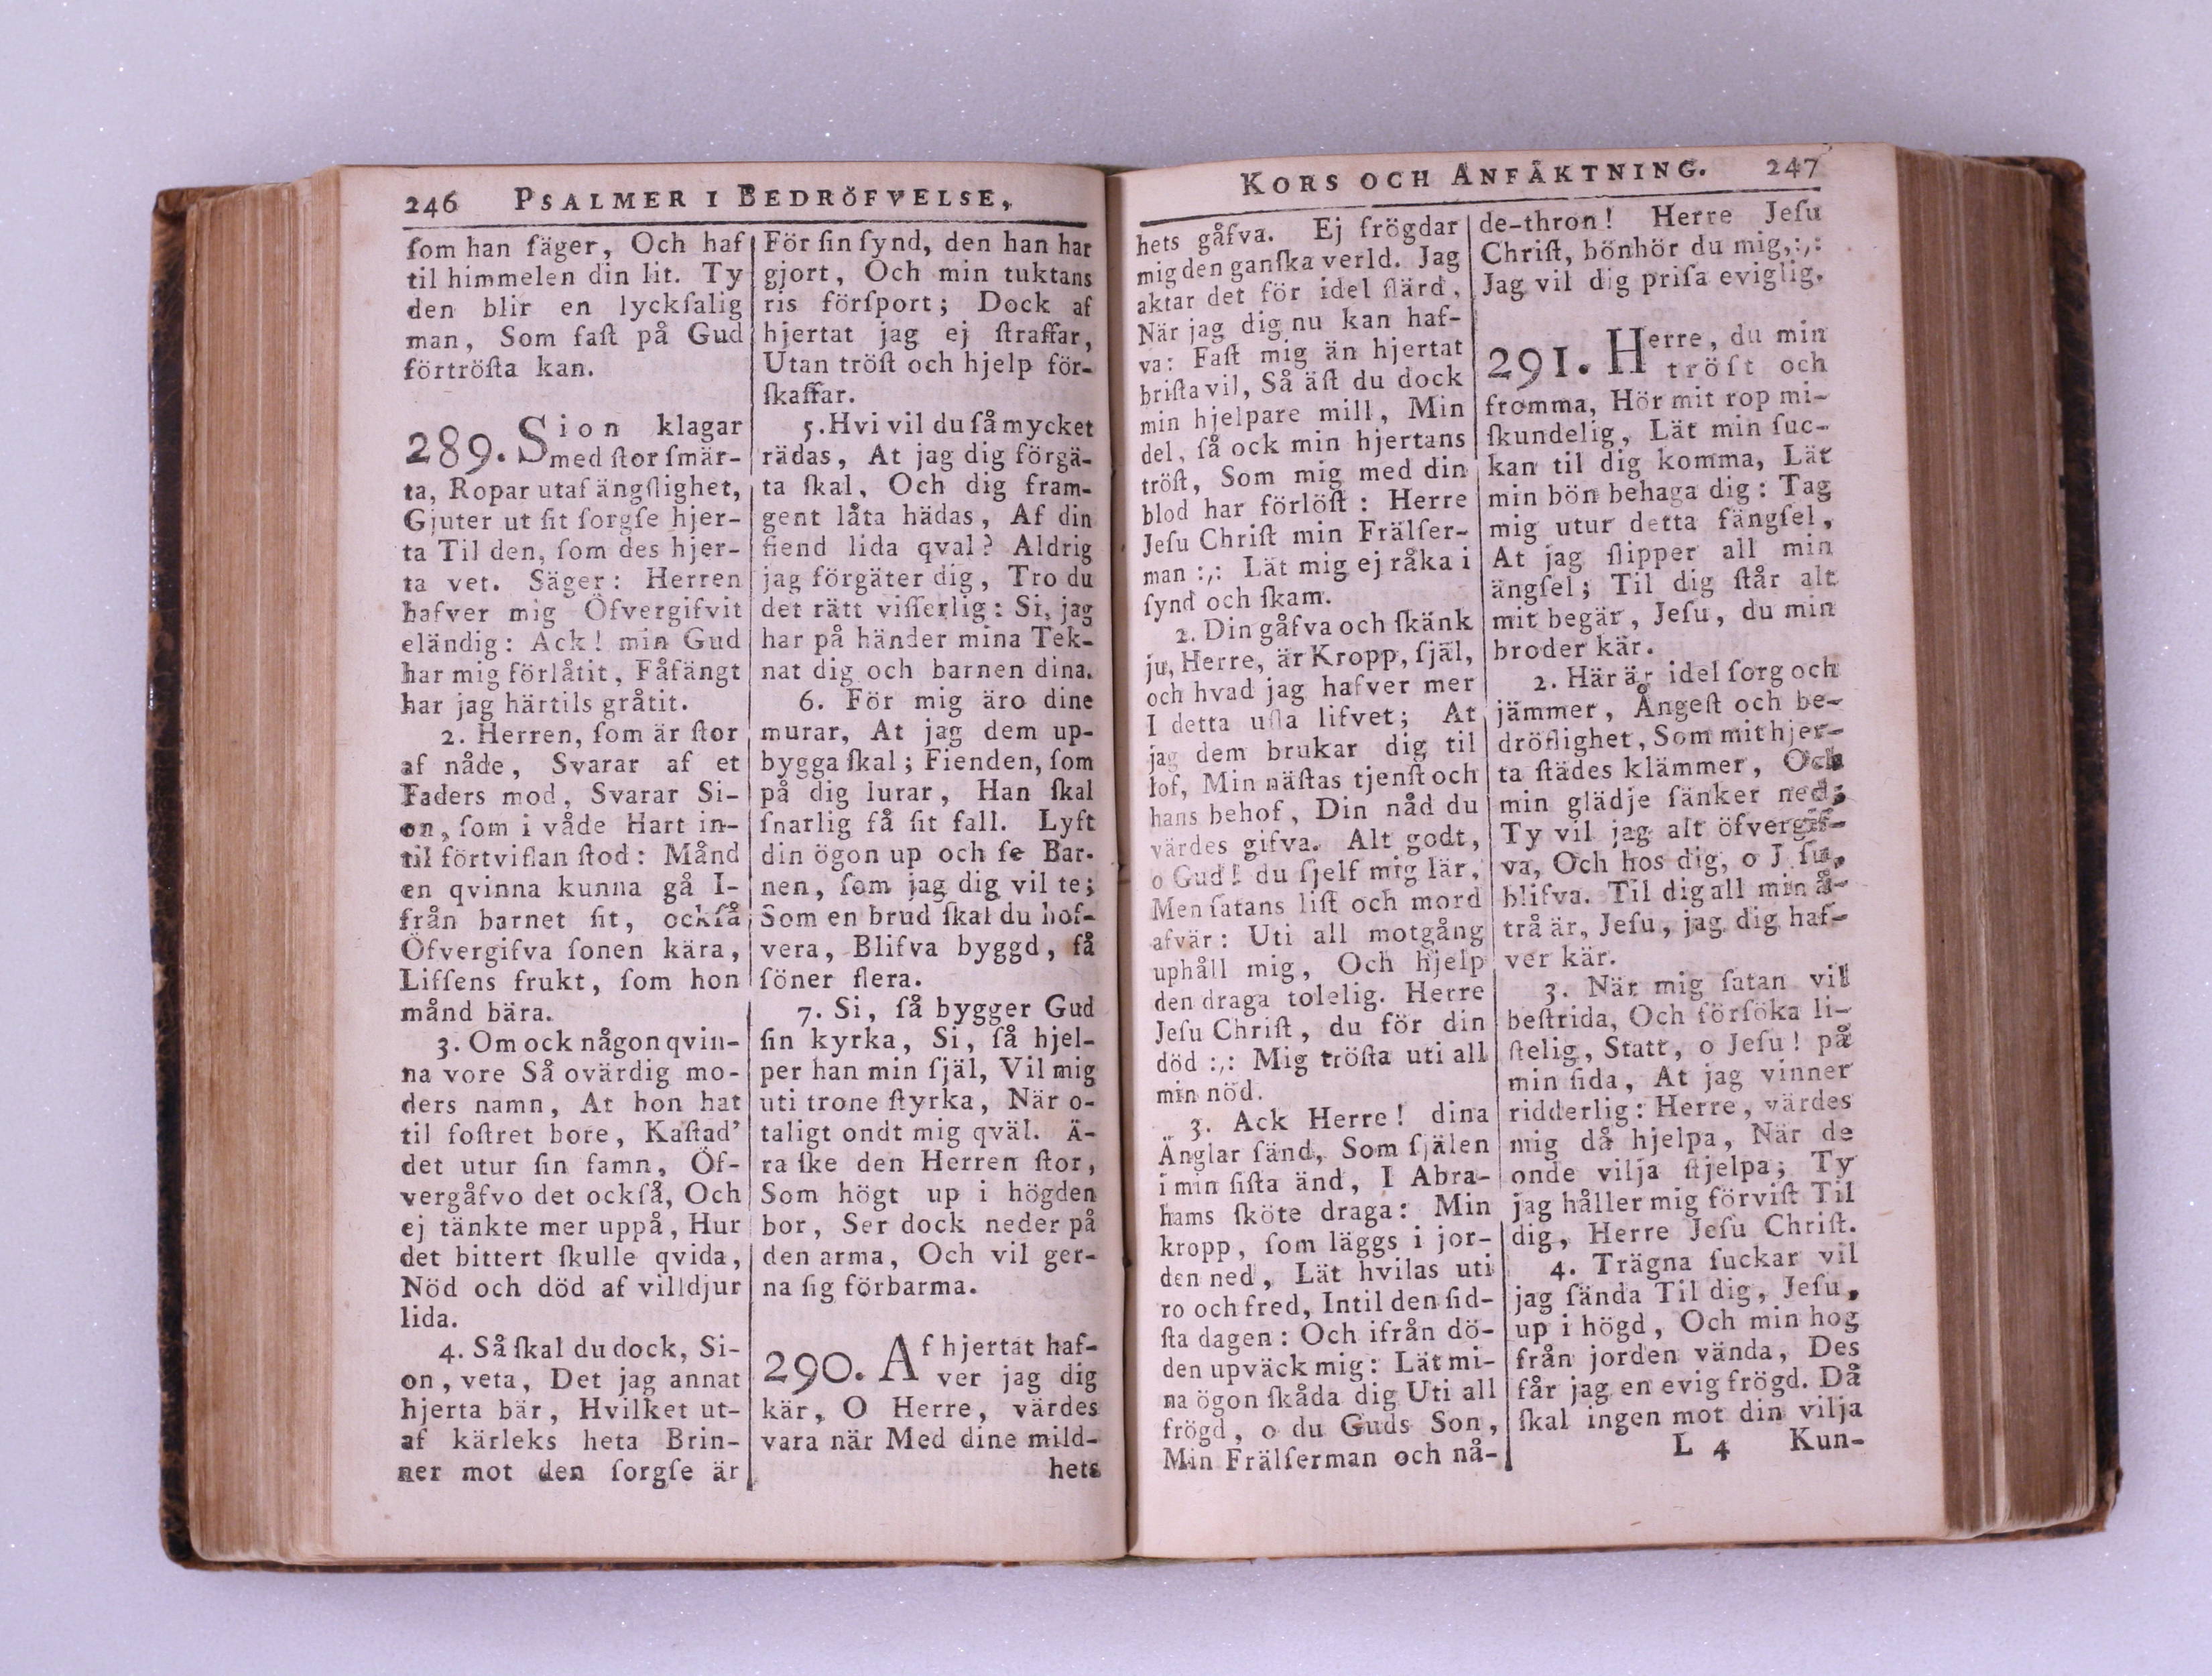 246 PSALMER I BEDRÖFVELSE,
ſom han ſäger, Och haf
til himmelen din lit. Ty
den blir en lyckſalig
man, Som faſt på Gud
förtröſta kan.
289. Sion klagar
med ſtor ſmär-
ta, Ropar utaf ängſlighet,
Gjuter ut ſit ſorgſe hjer-
ta Til den, ſom des hjer-
ta vet. Säger: Herren
hafver mig Öfvergifvit
eländig: Ack! min Gud
har mig förlåtit, Fåfängt
har jag härtils gråtit.
2. Herren, ſom är ſtor
af nåde, Svarar af et
Faders mod, Svarar Si-
on, ſom i våde Hart in-
til förtviflan ſtod: Månd
en qvinna kunna gå I-
från barnet ſit, ockſå
Öfvergifva ſonen kära,
Lifſens frukt, ſom hon
månd bära.
3. Om ock någon qvin-
na vore Så ovärdig mo-
ders namn, At hon hat
til foſtret bore, Kaſtad'
det utur ſin famn, Öf-
vergåfvo det ockſå, Och
ej tänkte mer uppå, Hur
det bittert ſkulle qvida,
Nöd och död af villdjur
lida.
4. Så ſkal du dock, Si-
on, veta, Det jag annat
hjerta bär, Hvilket ut-
af kärleks heta Brin-
ner mot den ſorgſe är
För ſin ſynd, den han har
gjort, Och min tuktans
ris förſport; Dock af
hjertat jag ej ſtraffar,
Utan tröſt och hjelp för-
ſkaffar.
5. Hvi vil du ſå mycket
rädas, At jag dig förgä-
ta ſkal, Och dig fram-
gent låta hädas, Af din
fiend lida qval? Aldrig
jag förgäter dig, Tro du
det rätt viſſerlig: Si, jag
har på händer mina Tek-
nat dig och barnen dina.
6. För mig äro dine
murar, At jag dem up-
bygga ſkal; Fienden, ſom
på dig lurar, Han ſkal
ſnarlig få ſit fall. Lyft
din ögon up och ſe Bar-
nen, ſom jag dig vil te;
Som en brud ſkal du hof-
vera, Blifva byggd, få
ſöner flera.
7. Si, ſå bygger Gud
ſin kyrka, Si, ſå hjel-
per han min ſjäl, Vil mig
uti trone ſtyrka, När o-
taligt ondt mig qväl. Ä-
ra ſke den Herren ſtor,
Som högt up i högden
bor, Ser dock neder på
den arma, Och vil ger-
na ſig förbarma.
290. Af hjertat haf-
ver jag dig
kär, O Herre, värdes
vara när Med dine mild-
hets
KORS OCH ANFÄKTNING. 247
hets gåfva. Ej frögdar
mig den ganſka verld. Jag
aktar det för idel flärd,
När jag dig nu kan haf-
va: Faſt mig än hjertat
briſta vil, Så äſt du dock
min hjelpare mill, Min
del, ſå ock min hjertans
tröſt, Som mig med din
blod har förlöſt: Herre
Jeſu Chriſt min Frälſer-
man :,: Lät mig ej råka i
ſynd och ſkam.
2. Din gåfva och ſkänk
ju, Herre, är Kropp, ſjäl,
och hvad jag hafver mer
I detta uſla lifvet; At
jag dem brukar dig til
lof, Min näſtas tjenſt och
hans behof, Din nåd du
värdes gifva. Alt godt,
o Gud! du ſjelf mig lär,
Men ſatans liſt och mord
afvär: Uti all motgång
uphåll mig, Och hjelp
den draga tolelig. Herre
Jeſu Chriſt, du för din
död :,: Mig tröſta uti all
min nöd.
3. Ack Herre! dina
Änglar ſänd, Som ſjälen
i min ſiſta änd, I Abra-
hams ſköte draga: Min
kropp, ſom läggs i jor-
den ned, Lät hvilas uti
ro och fred, Intil den ſid-
ſta dagen: Och ifrån dö-
den upväck mig: Lät mi-
na ögon ſkåda dig Uti all
frögd, o du Guds Son,
Min Frälſerman och nå-
de-thron! Herre Jeſu
Chriſt, bönhör du mig,:,:
Jag vil dig priſa eviglig.
291. Herre, du min
tröſt och
fromma, Hör mit rop mi-
ſkundelig, Lät min ſuc-
kan til dig komma, Lät
min bön behaga dig: Tag
mig utur detta fängſel,
At jag ſlipper all min
ängſel; Til dig ſtår alt
mit begär, Jeſu, du min
broder kär.
2. Här är idel ſorg och
jämmer, Ångeſt och be-
dröflighet, Som mit hjer-
ta ſtädes klämmer, Och
min glädje ſänker ned;
Ty vil jag alt öfvergif-
va, Och hos dig, o Jeſu,
blifva. Til dig all min å-
trå är, Jeſu, jag dig haf-
ver kär.
3. När mig ſatan vill
beſtrida, Och förſöka li-
ſtelig, Statt, o Jeſu! på
min ſida, At jag vinner
ridderlig: Herre, värdes
mig då hjelpa, När de
onde vilja ſtjelpa; Ty
jag håller mig förviſt Til
dig, Herre Jeſu Chriſt.
4. Trägna ſuckar vil
jag ſända Til dig, Jeſu,
up i högd, Och min hog
från jorden vända, Des
får jag en evig frögd. Då
ſkal ingen mot din vilja
L 4 Kun-